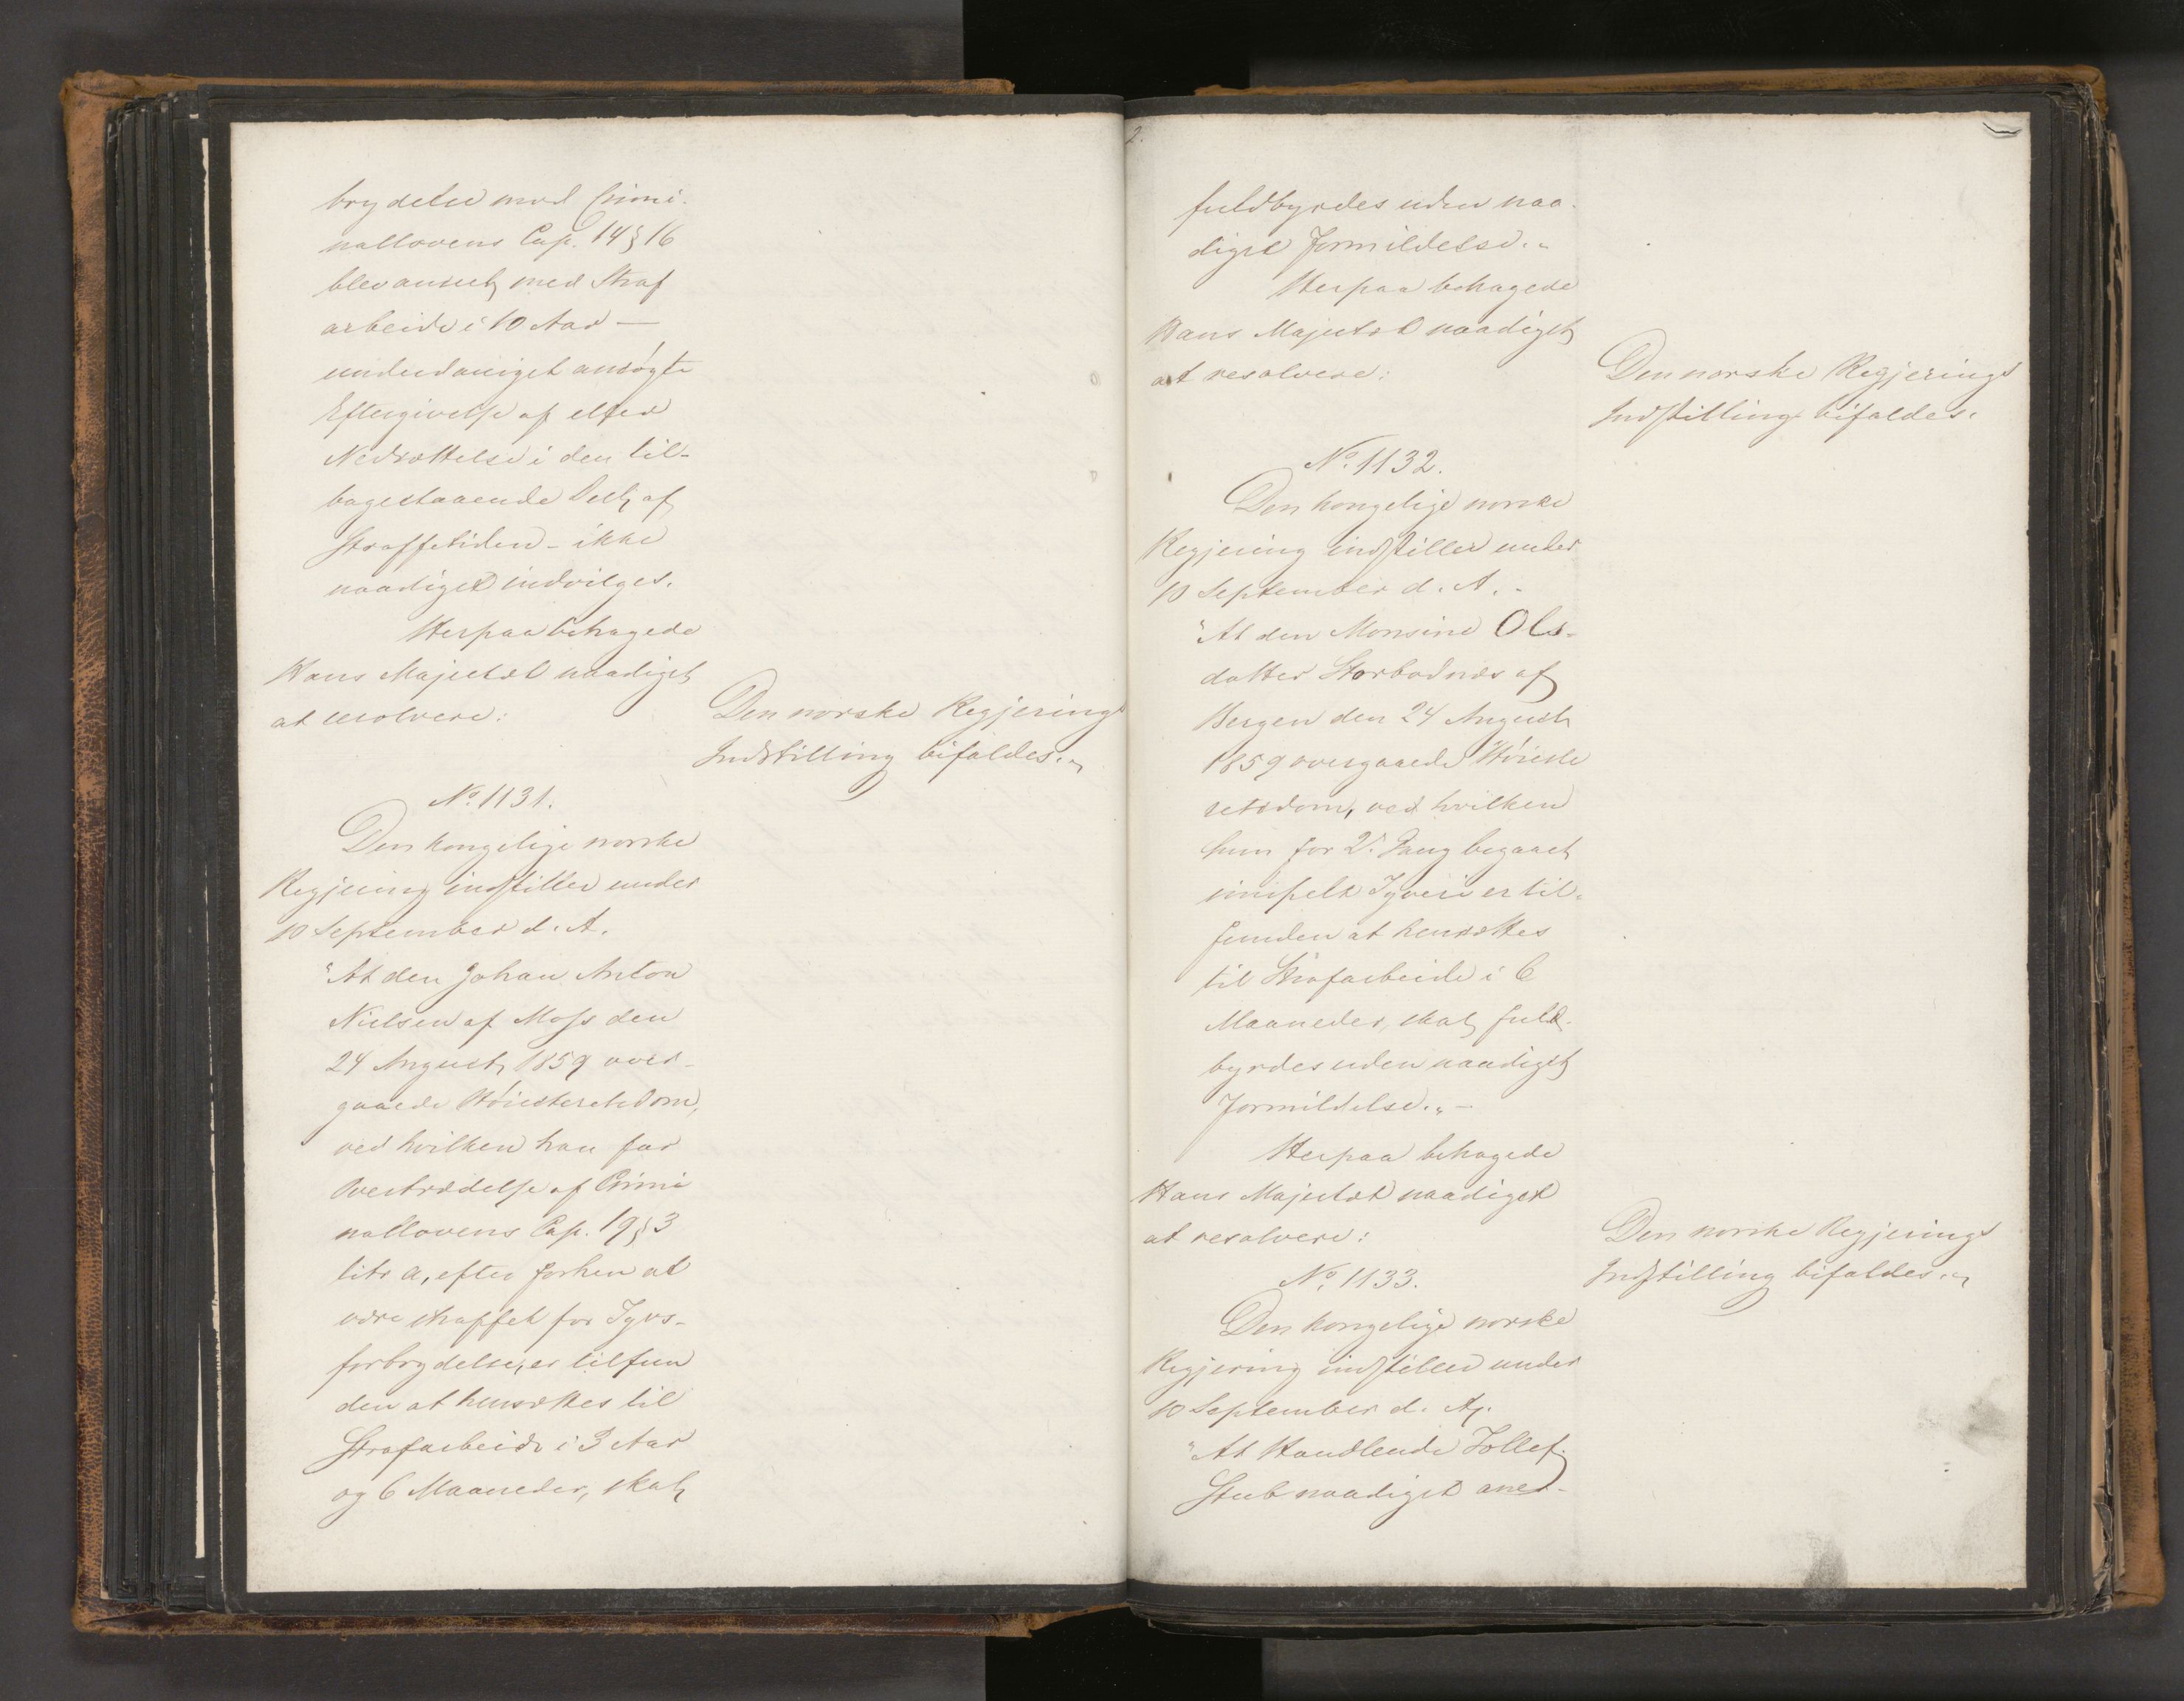 brydelse mod Crimi-
nallovens Cap. 14 § 16
blev anseet med Straf
arbeide i 10 Aar —
underdanigst ansøgte
Eftergivelse af eller
Nedsættelse i den til-
bagestaaende Deel af
Straffetiden - ikke
naadigst indvilges.
Herpaa behagede
Hans Majestæt naadigst
at resolvere:
Den norske Regjerings
Indstilling bifaldes.„
No. 1131.
Den kongelige norske
Regjering indstiller under
10 September d. A.
"At den Johan Anton
Nielsen af Moss den
24 August 1859 over-
gaaede Høiesteretsdom,
ved hvilken han for
Overtrædelse af Crimi
nallovens Cap. 19 § 3
litr a, efter forhen at
være straffet for Tyvs-
forbrydelse, er tilfun
den at hensættes til
Strafarbeide i 3 Aar
og 6 Maaneder, skal
2.
fuldbyrdes uden naa-
digst Formildelse.„
Herpaa behagede
Hans Majestæt naadigst
at resolvere:
Den norske Regjerings
Indstilling bifaldes.
No. 1132.
Den kongelige norske
Regjering indstiller under
10 September d. A. -
"At den Monsine Ols-
datter Storbodnæs af
Bergen den 24 August
1859 overgaaede Høieste
retsdom, ved hvilken
hun for 2. Gang begaaet
simpelt Tyveri er til-
funden at hensættes
til Strafarbeide i 6
Maaneder, skal fuld-
byrdes uden naadigst
Formildelse.„ —
Herpaa behagede
Hans Majestæt naadigst
at resolvere:
Den norske Regjerings
Indstilling bifaldes.„
No. 1133.
Den kongelige norske
Regjering indstiller under
10 September d. A.
"At Handlende Tollef
Stub naadigst med-